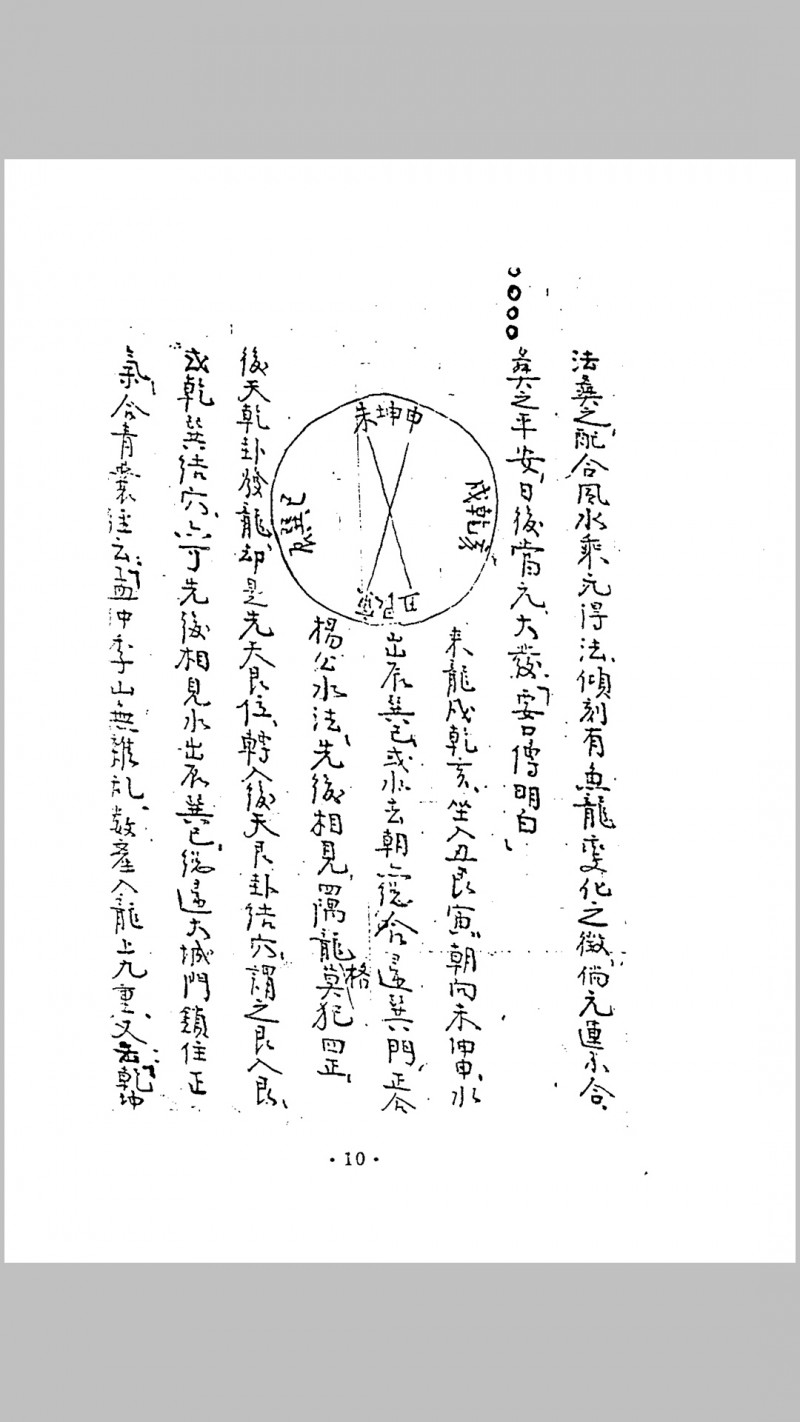 法葬之、配合風水乘元得法、傾刻有魚龍變化之徵、倘元運不合、
葬之平安、日後當元、大發、要口傳明白、
未坤申
戌乾亥
辰巽巳
丑艮寅
来龍戌乾亥、坐入丑艮寅、朝向未坤申、水
出辰巽巳、或水去朝、總合巽門、正合
楊公水法、先後相見、四隅龍格莫犯四正、
後天乾卦發龍、却是先天艮位、轉入後天艮卦結穴、謂之艮入艮、
或乾巽結穴、亦可先後相見水出辰巽巳、總是大城門鎖住正
氣、合青囊注云、孟仲季山無雜乱、數產入龍上九重、又云乾坤
·10·